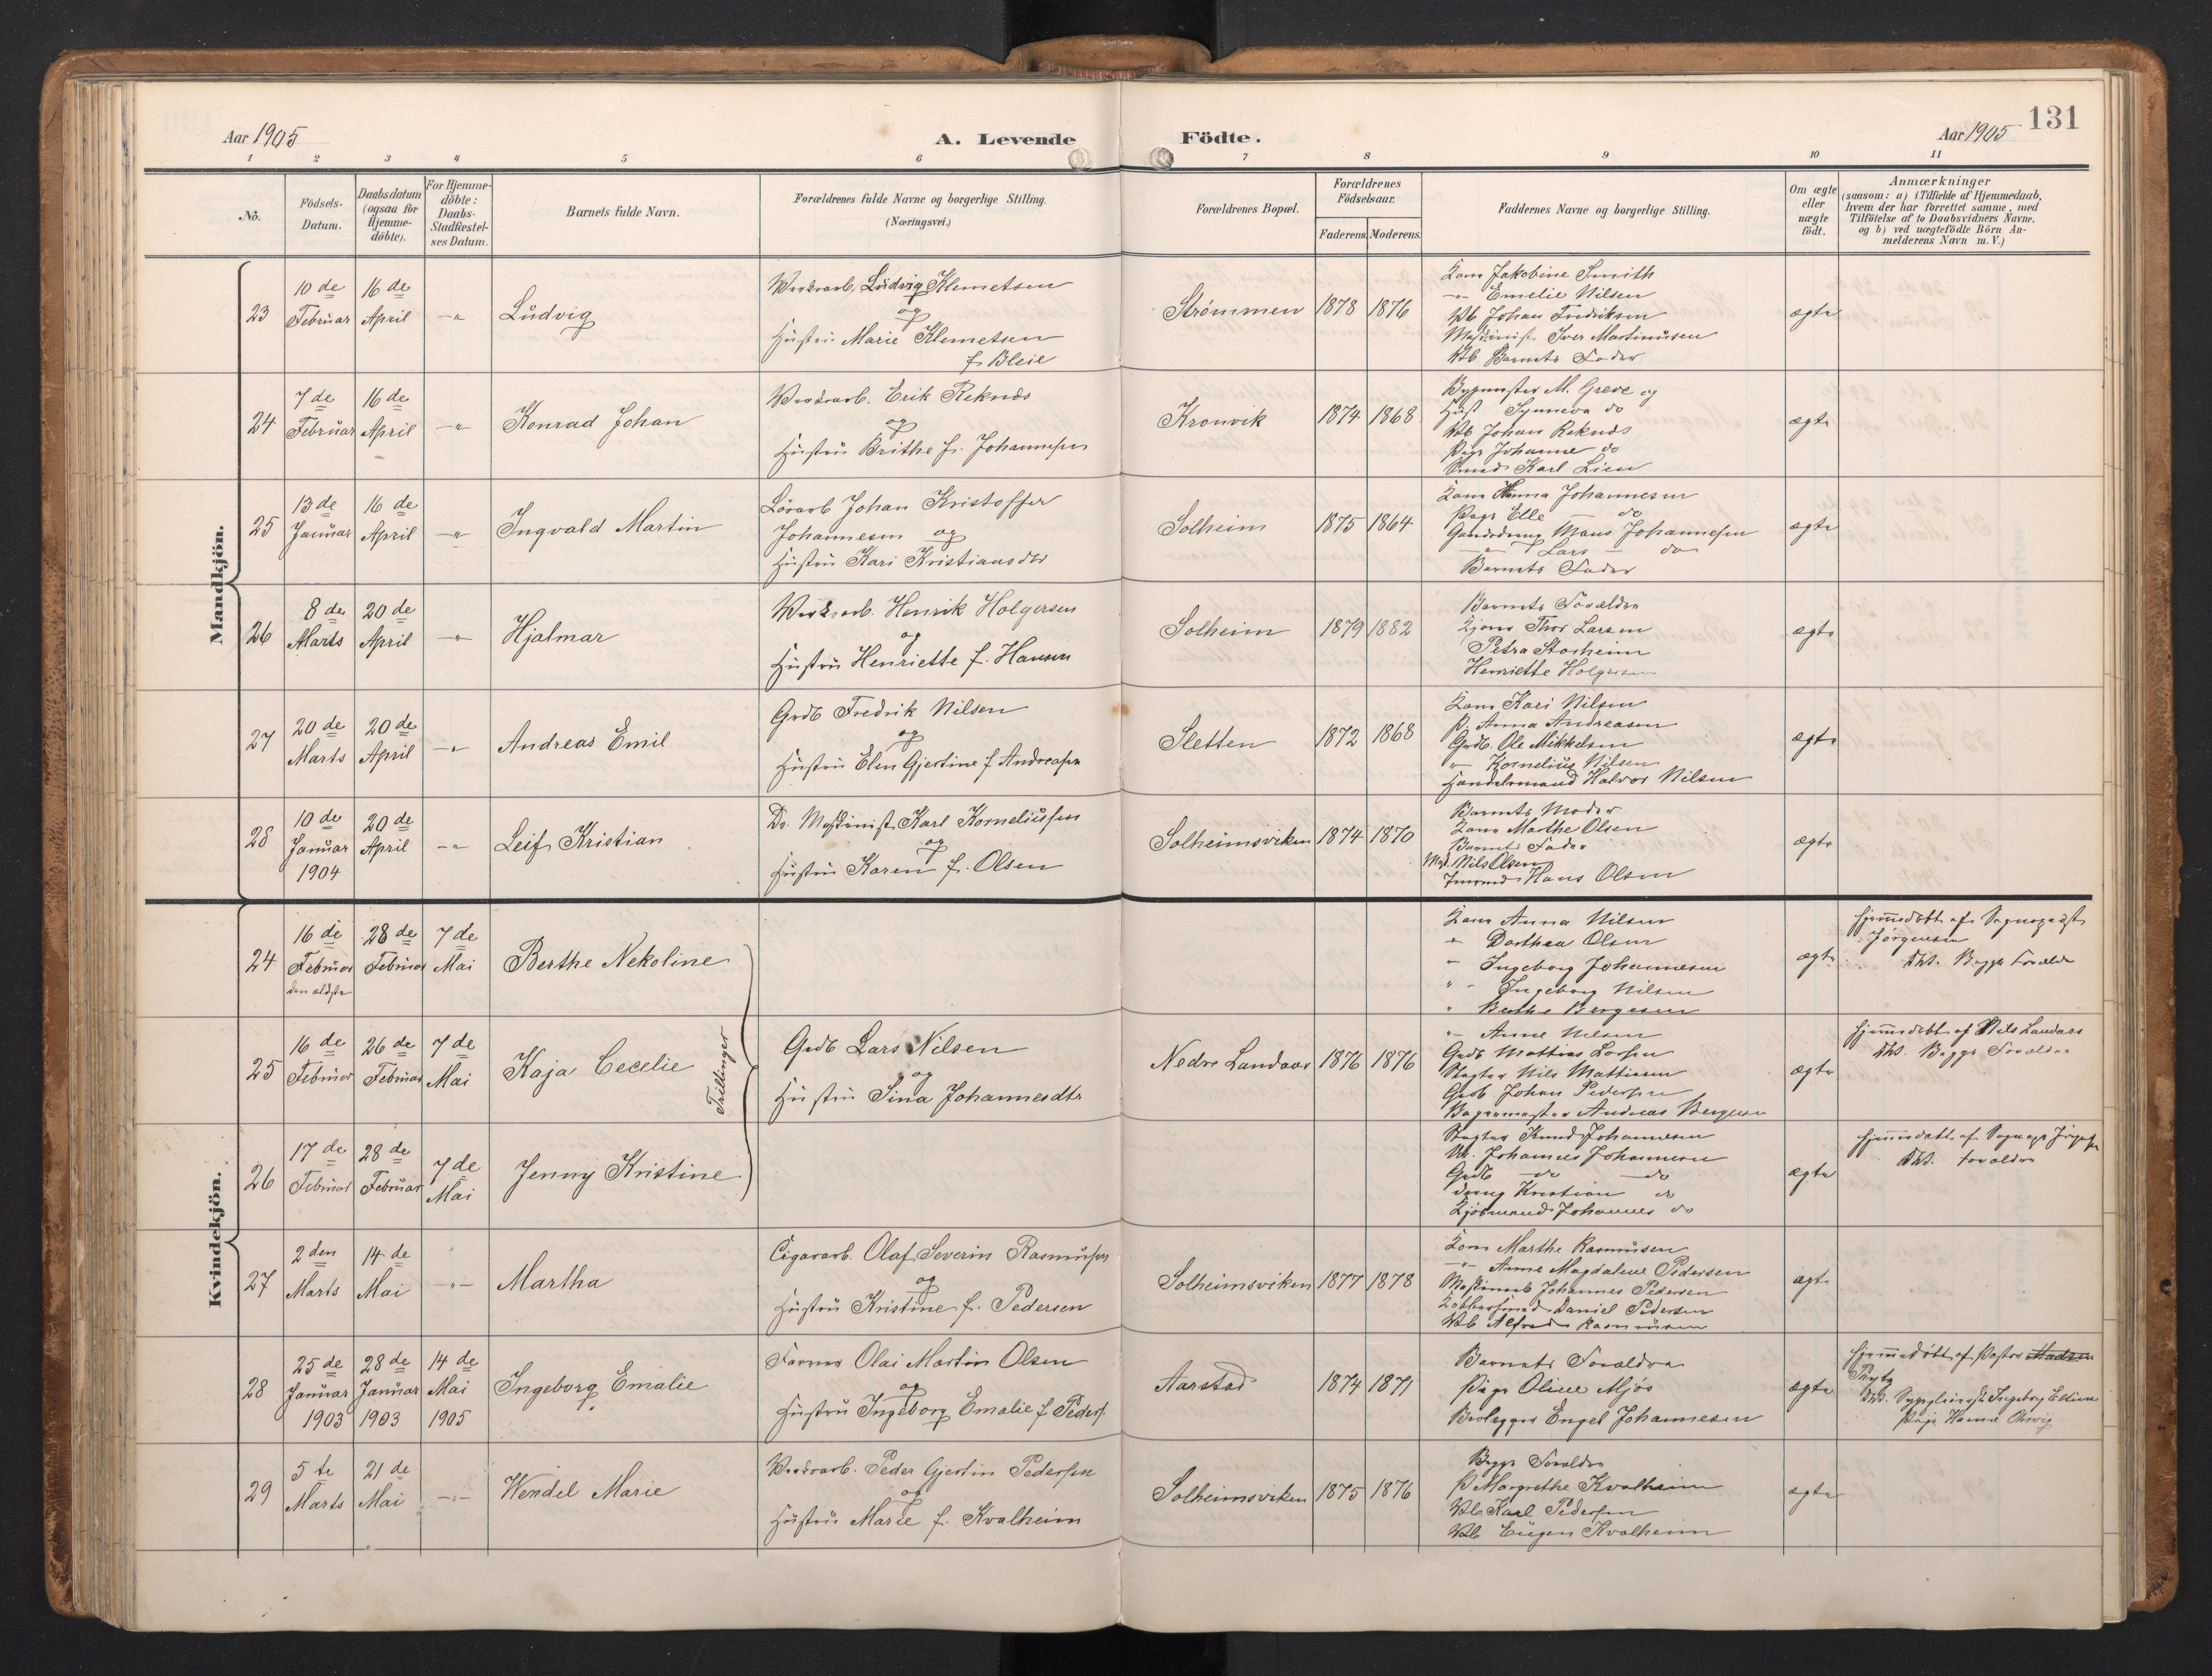 Aar 1905
A. Levende
Födte.
Aar 1905
131
1 2 3 4 5 6 7 8 9 10 11
No.
Födsels-
Datum.
Daabsdatum
(ogsaa for
Hjemme-
döbte).
For Hjemme-
döbte:
Daabs-
Stadfæstel-
ses Datum.
Barnets fulde Navn.
Forældrenes fulde Navne og borgerlige Stilling.
(Næringsvei.)
Forældrenes Bopæl.
Forældrenes
Födselsaar.
Faderens. Moderens.
Faddernes Navne og borgerlige Stilling.
Om ægte
eller
uægte
födt.
Anmærkninger
(saasom: a) i Tilfælde af Hjemmedaab,
hvem der har forrettet samme, med
Tilföielse af to Daabsvidners Navne.
og b) ved uægtefödte Börn An-
melderens Navn m. V.)
Mandkjön.
23
10 de
Februar
16 de
April
-"-
Ludvig
Verksarb. Ludvig Klemetsen
og
Hustru Marie Klemetsen
f. Bleie
Strømmen
1878
1876
Kone Jakobine Smith
-"- Emelie Nilsen
Vb Johan Fredriksen
Maskinist Iver Martinusen
Barnets Fader
ægte
24
7 de
Februar
16 de
April
-"-
Konrad Johan
Verksarb. Erik Reknes
og
Hustru Brithe f. Johannesen
Kronvik
1874
1868
Bygmester M. Greve og
Hust Synneva do
Vb Johan Reknes
Pige Johanne do
Smed Karl Lien
ægte
25
13 de
Januar
16 de
April
-"-
Ingvald Martin
Johan Kristoffer
Johannesen og
Hustru Kari Kristiansdtr
Solheim
1875
1864
Kone Anna Johannesen
Pige Elle do
Gaardsdreng Mons Johannesen
-"- Lars do
Barnets Fader
ægte
26
8 de
Marts
20 de
April
-"-
Hjalmar
Verksarb. Henrik Holgersen
og
Hustru Henriette f. Hansen
Solheim
1879
1882
Barnets Forældre
Thor Larsen
Petra Storheim
Henriette Holgersen
ægte
27
20 de
Marts
20 de
April
-"-
Andreas Emil
Grdb Fredrik Nilsen
og
Hustru Elen Gjertine f Andreasen
Sletten
1872
1868
Kone Kari Nilsen
P. Anna Andreasen
Grdb. Ole Mikkelsen
-"- Kornelius Nilsen
Handelsmand Halvor Nilsen
ægte
28
10 de
Januar
1904
20 de
April
-"-
Leif Kristian
Maskinist Karl Korneliussen
og
Hustru Karen f. Olsen
Solheimsviken
1874
1870
Barnets Moder
Kone Marthe Olsen
Barnets Fader
Nils Olsen
Hans Olsen
ægte
Kvindekjön.
24
16 de
Februar
den ældste
28 de
Februar
7 de
Mai
Berthe Nekoline
Kone Anna Nilsen
" Dorthea Olsen
" Ingeborg Johannesen
" Ingeborg Nilsen
" Berthe Bergesen
ægte
Hjemmedøbt af Sogneprest
Jørgensen
Dbs. Begge Forældre
25
16 de
Februar
26 de
Februar
7 de
Mai
Kaja Cecelie
Trillinger
Grdb Lars Nilsen
og
Hustru Sina Johannesdtr
Nedre Landaas
1876
1876
" Anne Nilsen
Grdb Mattias Larsen
Slagter Nils Mattiasen
Grdb Johan Pedersen
Bagermester Andreas Bergesen
ægte
Hjemmedøbt af Nils Landaas
Dbs. Begge Forældre
26
17 de
Februar
28 de
Februar
7 de
Mai
Jenny Kristine
Slagter Knud Johannesen
Johannes Johannesen
Grdb do do
dreng Kristian do
Johannes do
ægte
Hjemmedøbt af Sognepr Jørgensen
Dbs. Forældre
27
2 den
Marts
14 de
Mai
-"-
Martha
Cigararb. Olaf Severin Rasmussen
og
Hustru Kristine f. Pedersen
Solheimsviken
1877
1878
Kone Marthe Rasmusen
-"- Anne Magdalene Pedersen
Johannes Pedersen
Kobbersmed Daniel Pedersen
Vb Alfred Rasmusen
ægte
28
25 de
Januar
1903
28 de
Januar
1903
14 de
Mai
1905
Ingeborg Emalie
Farver Olai Martin Olsen
og
Hustru Ingeborg Emalie f Peders.
Aarstad
1874
1871
Barnets Forældre
Pige Oline Mjøs
Brolægger Engel Johannesen
ægte
Hjemmedøbt af Pastor Madsen
Dbs. Ingeborg
Pige Hanna
29
5 te
Marts
21 de
Mai
-"-
Wendel Marie
Verksarb. Peder Gjertin Pedersen
og
Hustru Marie f. Kvalheim
Solheimsviken
1875
1876
Begge Forældre
P Margrethe Kvalheim
Vb Karl Pedersen
Vb Eugen Kvalheim
ægte